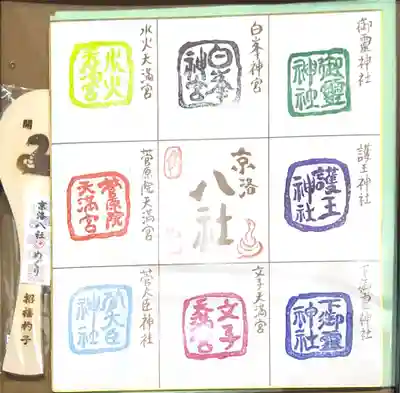 御靈神社
御靈神社
白峯神宮
白峯神宮
水火天満宮
水火天満宮
護王神社
護王神社
京洛
八社
菅原院天満宮
菅原院天満宮
下御靈神社
下御靈神社
文子天満宮
文子天満宮
菅大臣神社
菅大臣神社
開
京洛八社めぐり
招福杓子